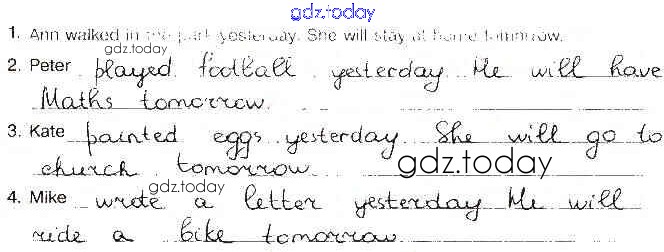 gdz.today
1. Ann walked in the park yesterday. She will stay at home tomorrow.
gdz.today
2. Peter played football yesterday He will have
Maths tomorrow.
3. Kate painted eggs yesterday She will go to
church tomorrow
gdz.today
gdz.today
4. Mike wrote a letter yesterday He will
ride a bike tomorrow